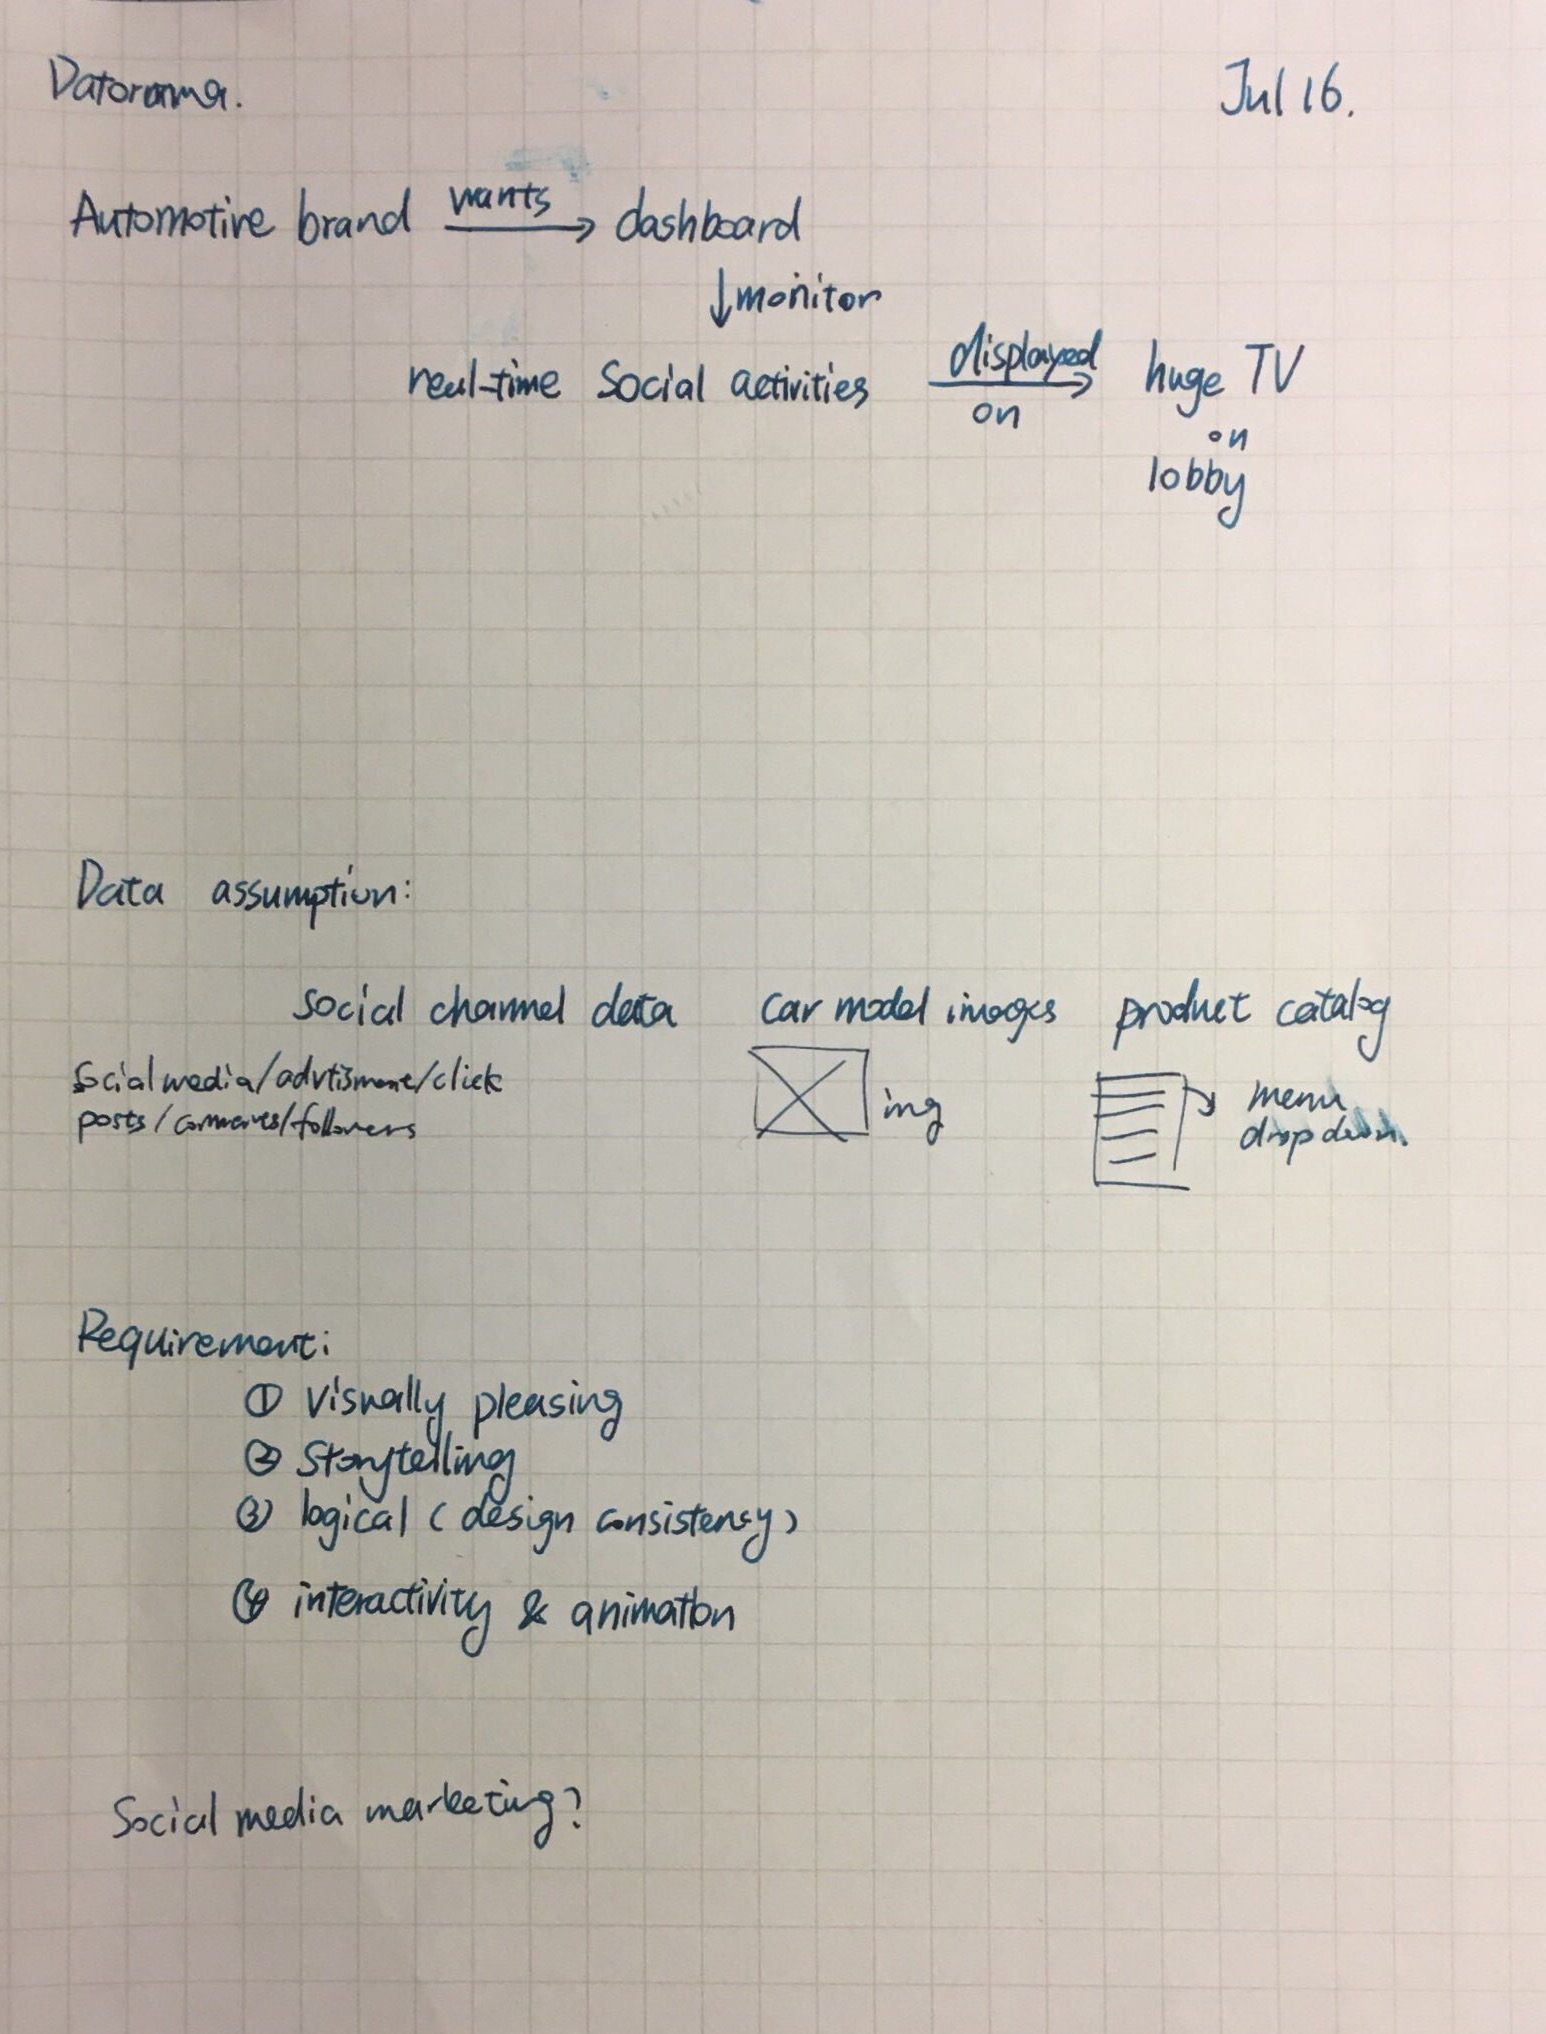 Datorama.
Jul 16.
Automotive brand wants dashboard
monitor
real-time Social activities displayed on huge TV
on
lobby
Data assumption:
social channel data car model images product catalog
Social media/advtisment/click
posts/comments/followers
img
menu
dropdown.
Requirement:
① Visually pleasing
② Storytelling
③ logical (design consistency)
④ interactivity & animation
Social media marketing?